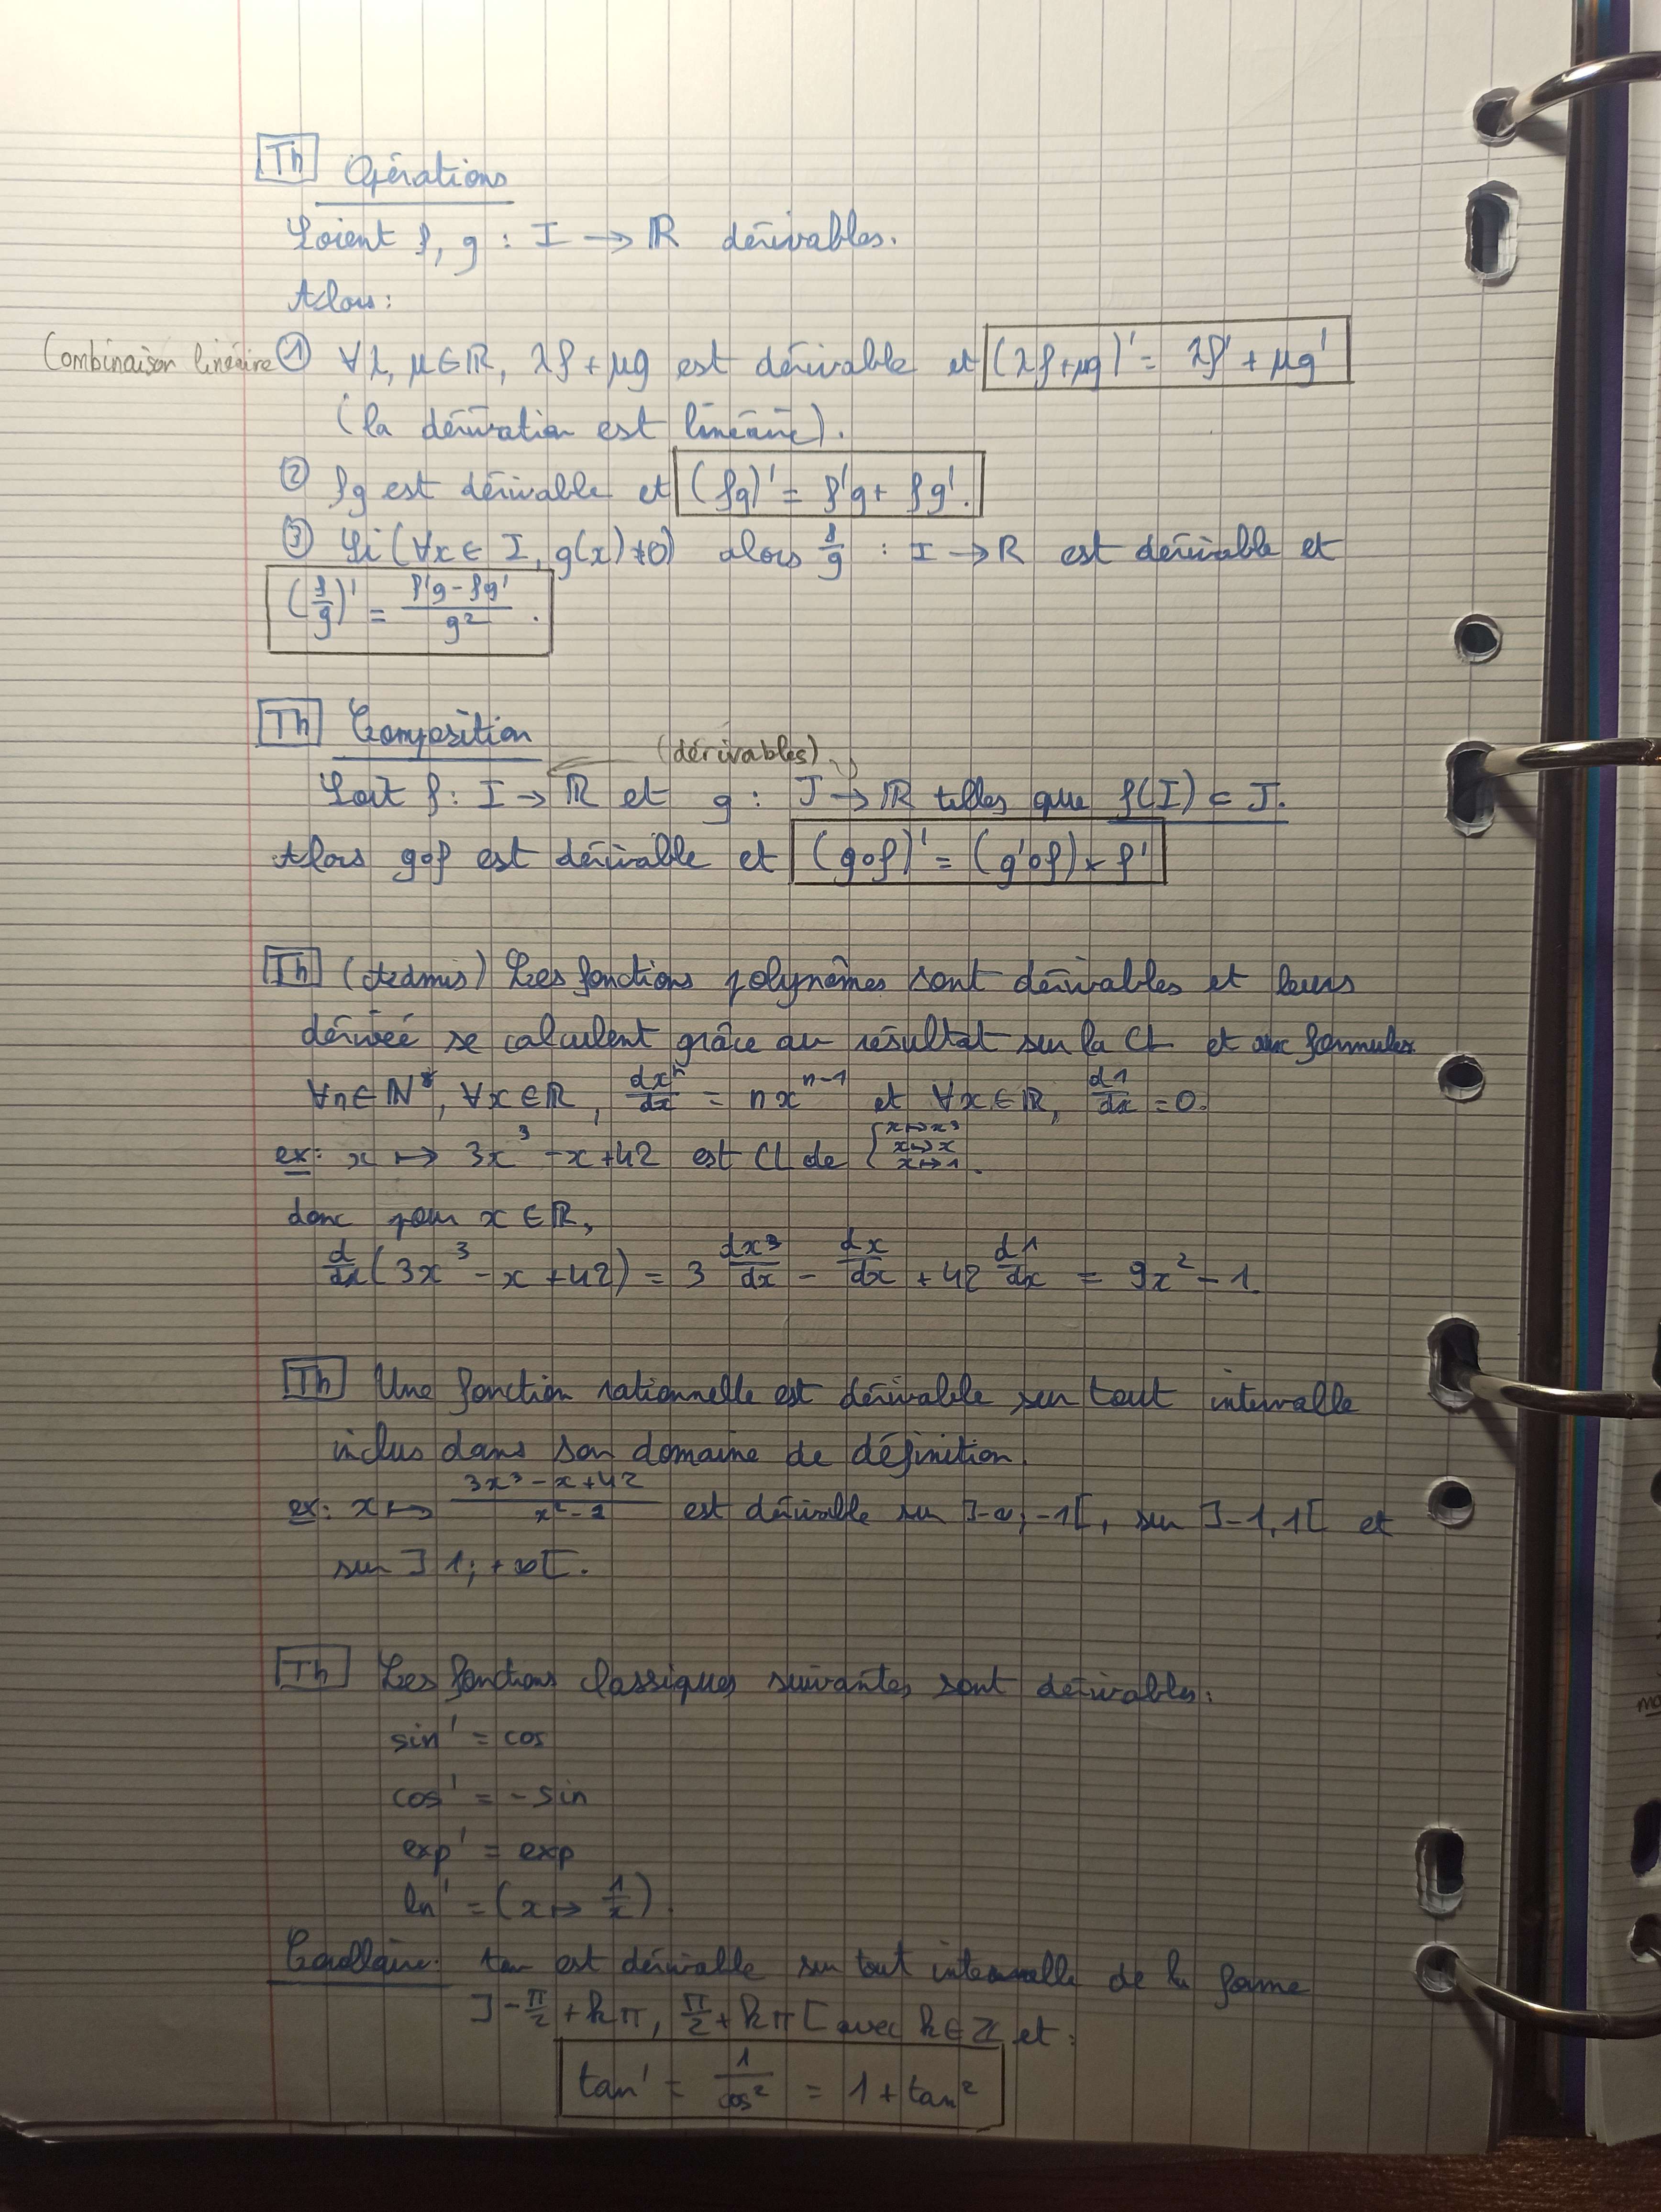 Th Opérations
Soient f, g : I → ℝ dérivables.
Alors :
Combinaison linéaire ① ∀λ, μ ∈ ℝ, λf + μg est dérivable et (λf+μg)' = λf' + μg'
(la dérivation est linéaire).
② fg est dérivable et (fg)' = f'g + fg'.
③ Si (∀x ∈ I, g(x) ≠ 0) alors f/g : I → ℝ est dérivable et
(f/g)' = (f'g - fg')/g² .
Th Composition
(dérivables)
Soit f : I → ℝ et g : J → ℝ telles que f(I) ⊂ J.
Alors g∘f est dérivable et (g∘f)' = (g'∘f) × f'
Th (Admis) Les fonctions polynômes sont dérivables et leurs
dérivée se calculent grâce au résultat sur la CL et aux formules
∀n ∈ ℕ*, ∀x ∈ ℝ, dxⁿ/dx = nxⁿ⁻¹ et ∀x ∈ ℝ, d1/dx = 0.
ex : x ↦ 3x³ - x + 42 est CL de { x ↦ x³
x ↦ x
x ↦ 1 .
donc pour x ∈ ℝ,
d/dx (3x³ - x + 42) = 3 dx³/dx - dx/dx + 42 d1/dx = 9x² - 1.
Th Une fonction rationnelle est dérivable sur tout intervalle
inclus dans son domaine de définition.
ex : x ↦ (3x³ - x + 42)/(x² - 1) est dérivable sur ]-∞ ; -1[, sur ]-1, 1[ et
sur ]1 ; +∞[.
Th Les fonctions classiques suivantes sont dérivables :
sin' = cos
cos' = - sin
exp' = exp
ln' = (x ↦ 1/x).
Corollaire : tan est dérivable sur tout intervalle de la forme
]-π/2 + kπ, π/2 + kπ[ avec k ∈ ℤ et :
tan' = 1/cos² = 1 + tan²